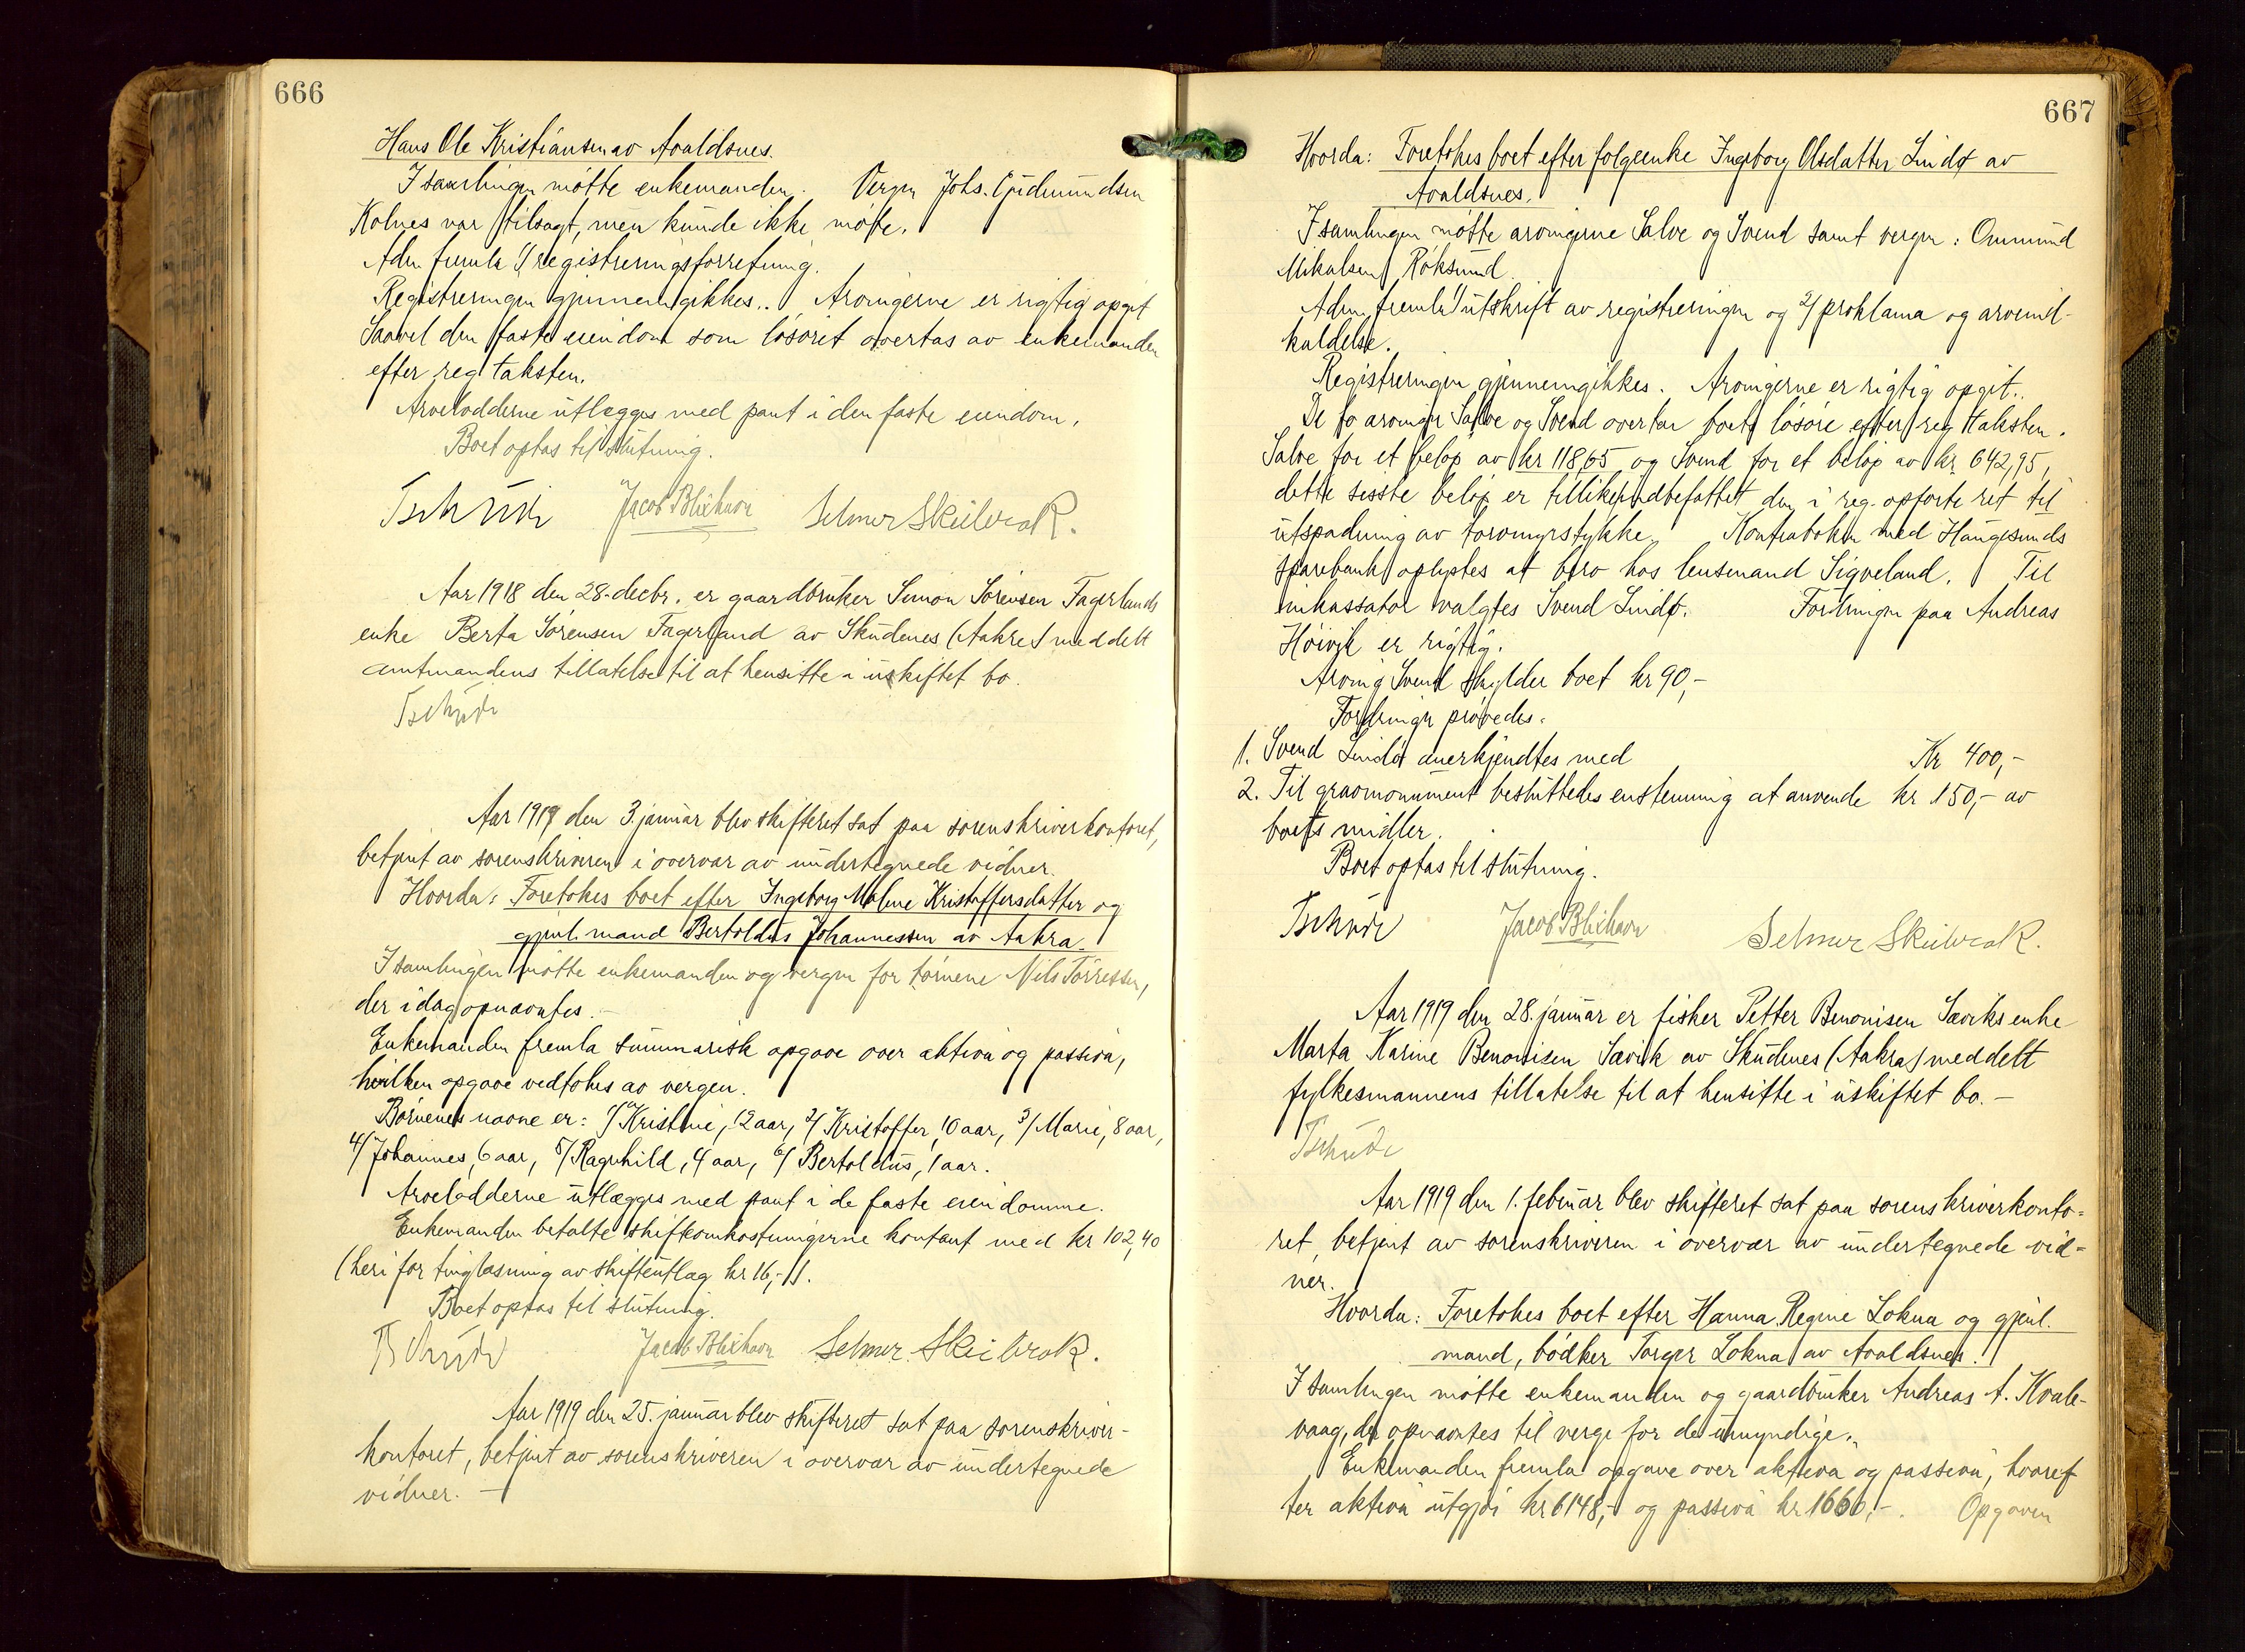 666
Hans Ole Kristiansen av Avaldsnes.
I samlingen møtte enkemanden. Vergen Johs. Gudmundsen
Kolnes var tilsagt, men kunde ikke møte.
Adm. fremla 1/ registreringsforretning.
Registreringen gjennemgikkes. Arvingerne er rigtig opgit
Saavel den faste eiendom som løsøret overtas av enkemanden
efter reg taksten.
Arvelodderne utlægges med pant i den faste eiendom.
Boet optas til slutning.
Tschudi Jacob Blikhavn Selmer Skeibrok.
Aar 1918 den 28. decbr. er gaardbruker Simon Sörensen Fagerlands
enke Berta Sørensen Fagerland av Skudenes (Aakre) meddelt
amtmandens tillatelse til at hensitte i uskiftet bo.
Tschudi
Aar 1919 den 3. januar blev skifteret sat paa sorenskriverkontoret,
betjent av sorenskriveren i overvær av undertegnede vidner.
Hvorda: Foretokes boet efter Ingeborg Malene Kristoffersdatter og
gjenl. mand Bertoldus Johannessen av Aakra.
I samlingen møtte enkemanden og vergen for børnene Nils Tørresen,
der idag opnævntes. -
Enkemanden fremla summarisk opgave over aktiva og passiva,
hvilken opgave vedtokes av vergen.
Børnenes navne er: 1/ Kristine, 12 aar, 2/ Kristoffer, 10 aar, 3/ Marie, 8 aar,
4/ Johannes, 6 aar, 5/ Ragnhild, 4 aar, 6/ Bertoldus, 1 aar.
Arvelodderne utlægges med pant i de faste eiendomme.
Enkemanden betalte skifteomkostningerne kontant med kr 102,40
(heri for tinglæsning av skifteutlæg kr 16,-).
Boet optas til slutning.
Tschudi Jacob Blikhavn Selmer Skeibrok.
Aar 1919 den 25. januar blev skifteret sat paa sorenskriver-
kontoret, betjent av sorenskriveren i overvær av undertegnede
vidner. -
667
Hvorda: Foretokes boet efter følgeenke Ingeborg Olsdatter Lindø av
Avaldsnes.
I samlingen møtte arvingerne Salve og Svend samt vergen: Ommund
Mikalsen Røksund.
Adm. fremla 1/ utskrift av registreringen og 2/ proklama og arveind-
kaldelse.
Registreringen gjennemgikkes. Arvingerne er rigtig opgit.
De to arvinger Salve og Svend overtar boets løsøre efter reg taksten.
Salve for et beløp av kr 118,65 og Svend for et beløp av kr. 642,95,
dette sisste beløp er tillike indbefattet den i reg. opførte ret til
utspadning av torvmyrstykke. Kontraboken med Haugesunds
sparebank oplystes at bero hos lensmand Sigveland. Til
inkassator valgtes Svend Lindø. Fordringen paa Andreas
Høivik er rigtig.
Arving Svend skylder boet kr 90,-
Fordringer prøvedes:
1. Svend Lindø anerkjendtes med Kr 400,-
2. Til gravmonument besluttedes enstemmig at anvende kr 150,- av
boets midler.
Boet optas til slutning.
Tschudi Jacob Blikhavn Selmer Skeibrok.
Aar 1919 den 28. januar er fisker Petter Benonisen Sæviks enke
Marta Karine Benonisen Sævik av Skudenes (Aakra) meddelt
fylkesmannens tillatelse til at hensitte i uskiftet bo. -
Tschudi
Aar 1919 den 1. februar blev skifteret sat paa sorenskriverkonto-
ret, betjent av sorenskriveren i overvær av undertegnede vid-
ner.
Hvorda: Foretokes boet efter Hanna Regine Lokna og gjenl.
mand, bødker Torger Lokna av Avaldsnes.
I samlingen møtte enkemanden og gaardbruker Andreas A. Kvale-
vaag, der opnævntes til verge for de umyndige.
Enkemanden fremla opgave over aktiva og passiva, hvoref
ter aktiva utgjør kr 6148,- og passiva kr 1660,-. Opgaven